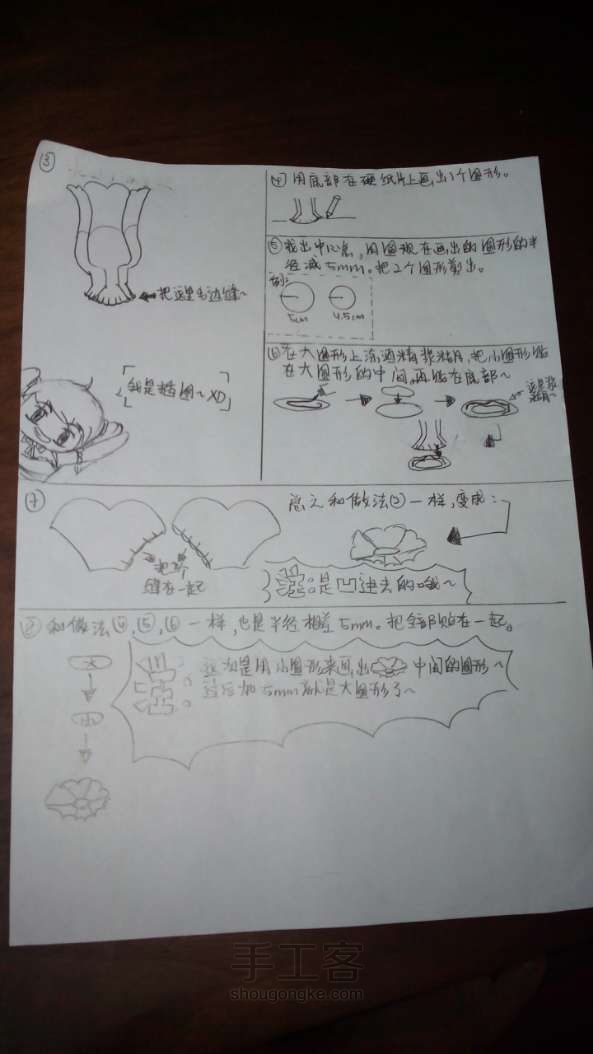 ③
把这里毛边缝~
我是插图~XD
④ 用底部在硬纸片上画出1个圆形。
⑤ 找出中心点,用圆规在画出的圆形的半
径减5mm。把2个圆形剪出。
5cm
4.5cm
⑥ 在大圆形上涂酒精胶粘片,把小圆形贴
在大圆形的中间,再贴在底部~
⑦
把2个
缝在一起
总之和做法②一样,变成:
是凹进去的哦~
⑧ 和做法④,⑤,⑥一样,也是半径相差5mm。把全部贴在一起。
大
小
这次是用小圆形来画出
中间的圆形~
然后加5mm就是大圆形了~
手工客
shougongke.com